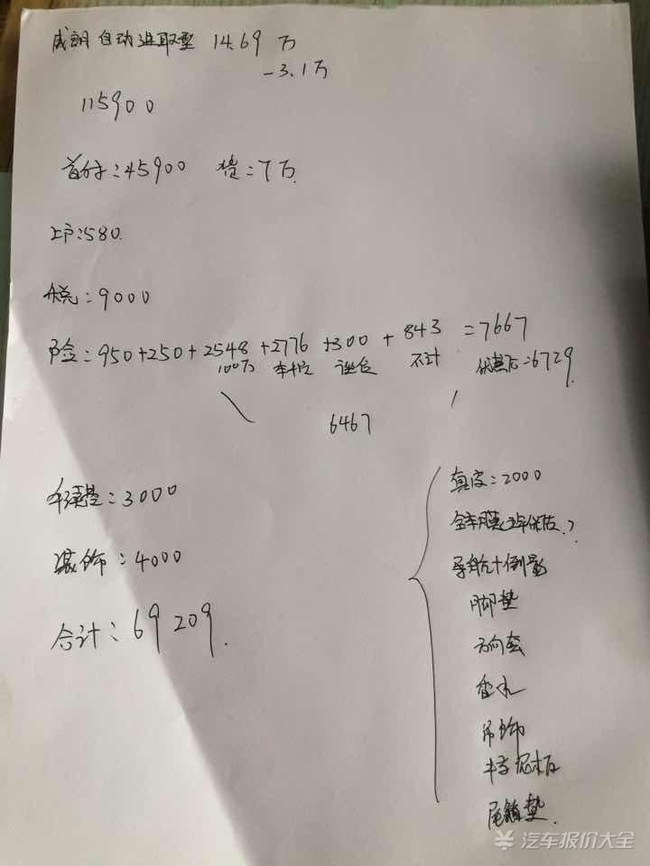 威朗自动进取型 14.69万
-3.1万
115900
首付:45900 贷:7万
上户:580.
税:9000
保险:950+250+2548+2776+300+843=7667
100万 车损 座位 不计 优惠后:6729.
6467
手续费:3000
真皮:2000
全车膜
装饰:4000
导航+倒影
脚垫
合计:69209.
方向套
香水
吊饰
尾箱垫.
汽车报价大全